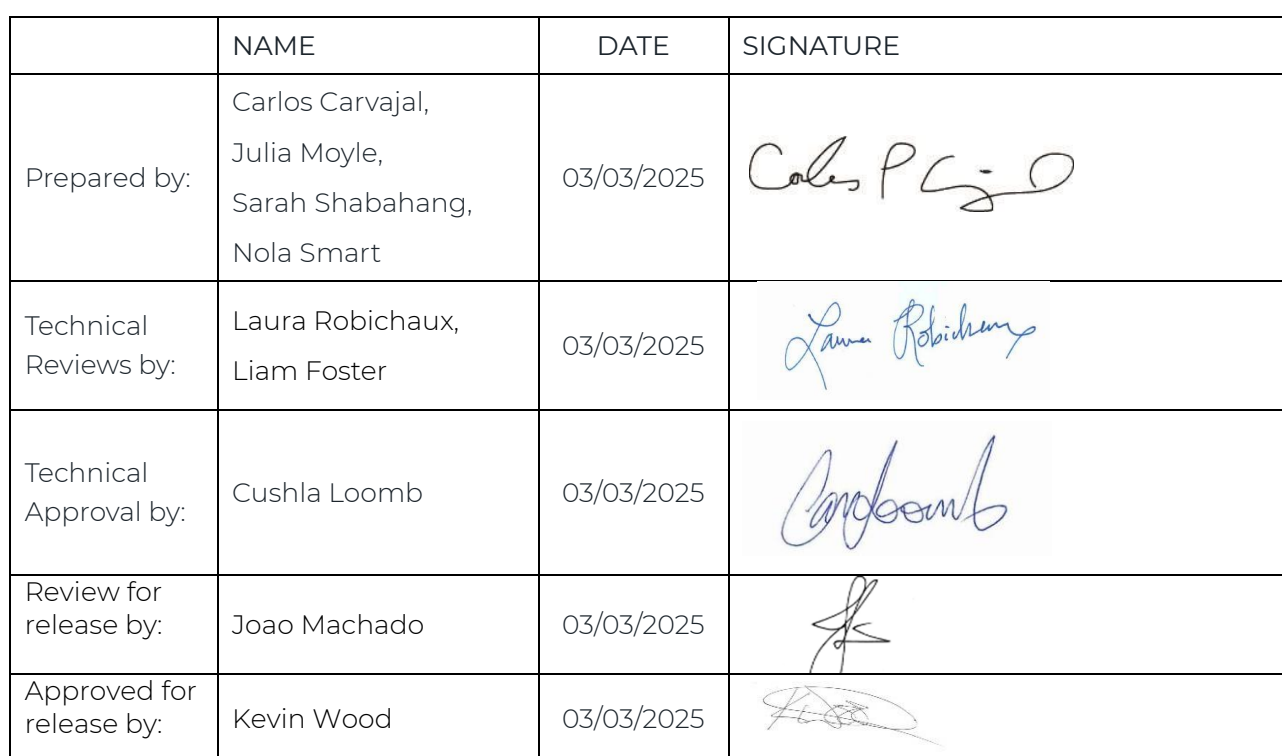 NAME DATE SIGNATURE
Prepared by:
Carlos Carvajal,
Julia Moyle,
Sarah Shabahang,
Nola Smart
03/03/2025
Carlos P
Technical
Reviews by:
Laura Robichaux,
Liam Foster
03/03/2025
Laura Robichaux
Technical
Approval by:
Cushla Loomb
03/03/2025
Review for
release by:
Joao Machado
03/03/2025
Approved for
release by:
Kevin Wood
03/03/2025